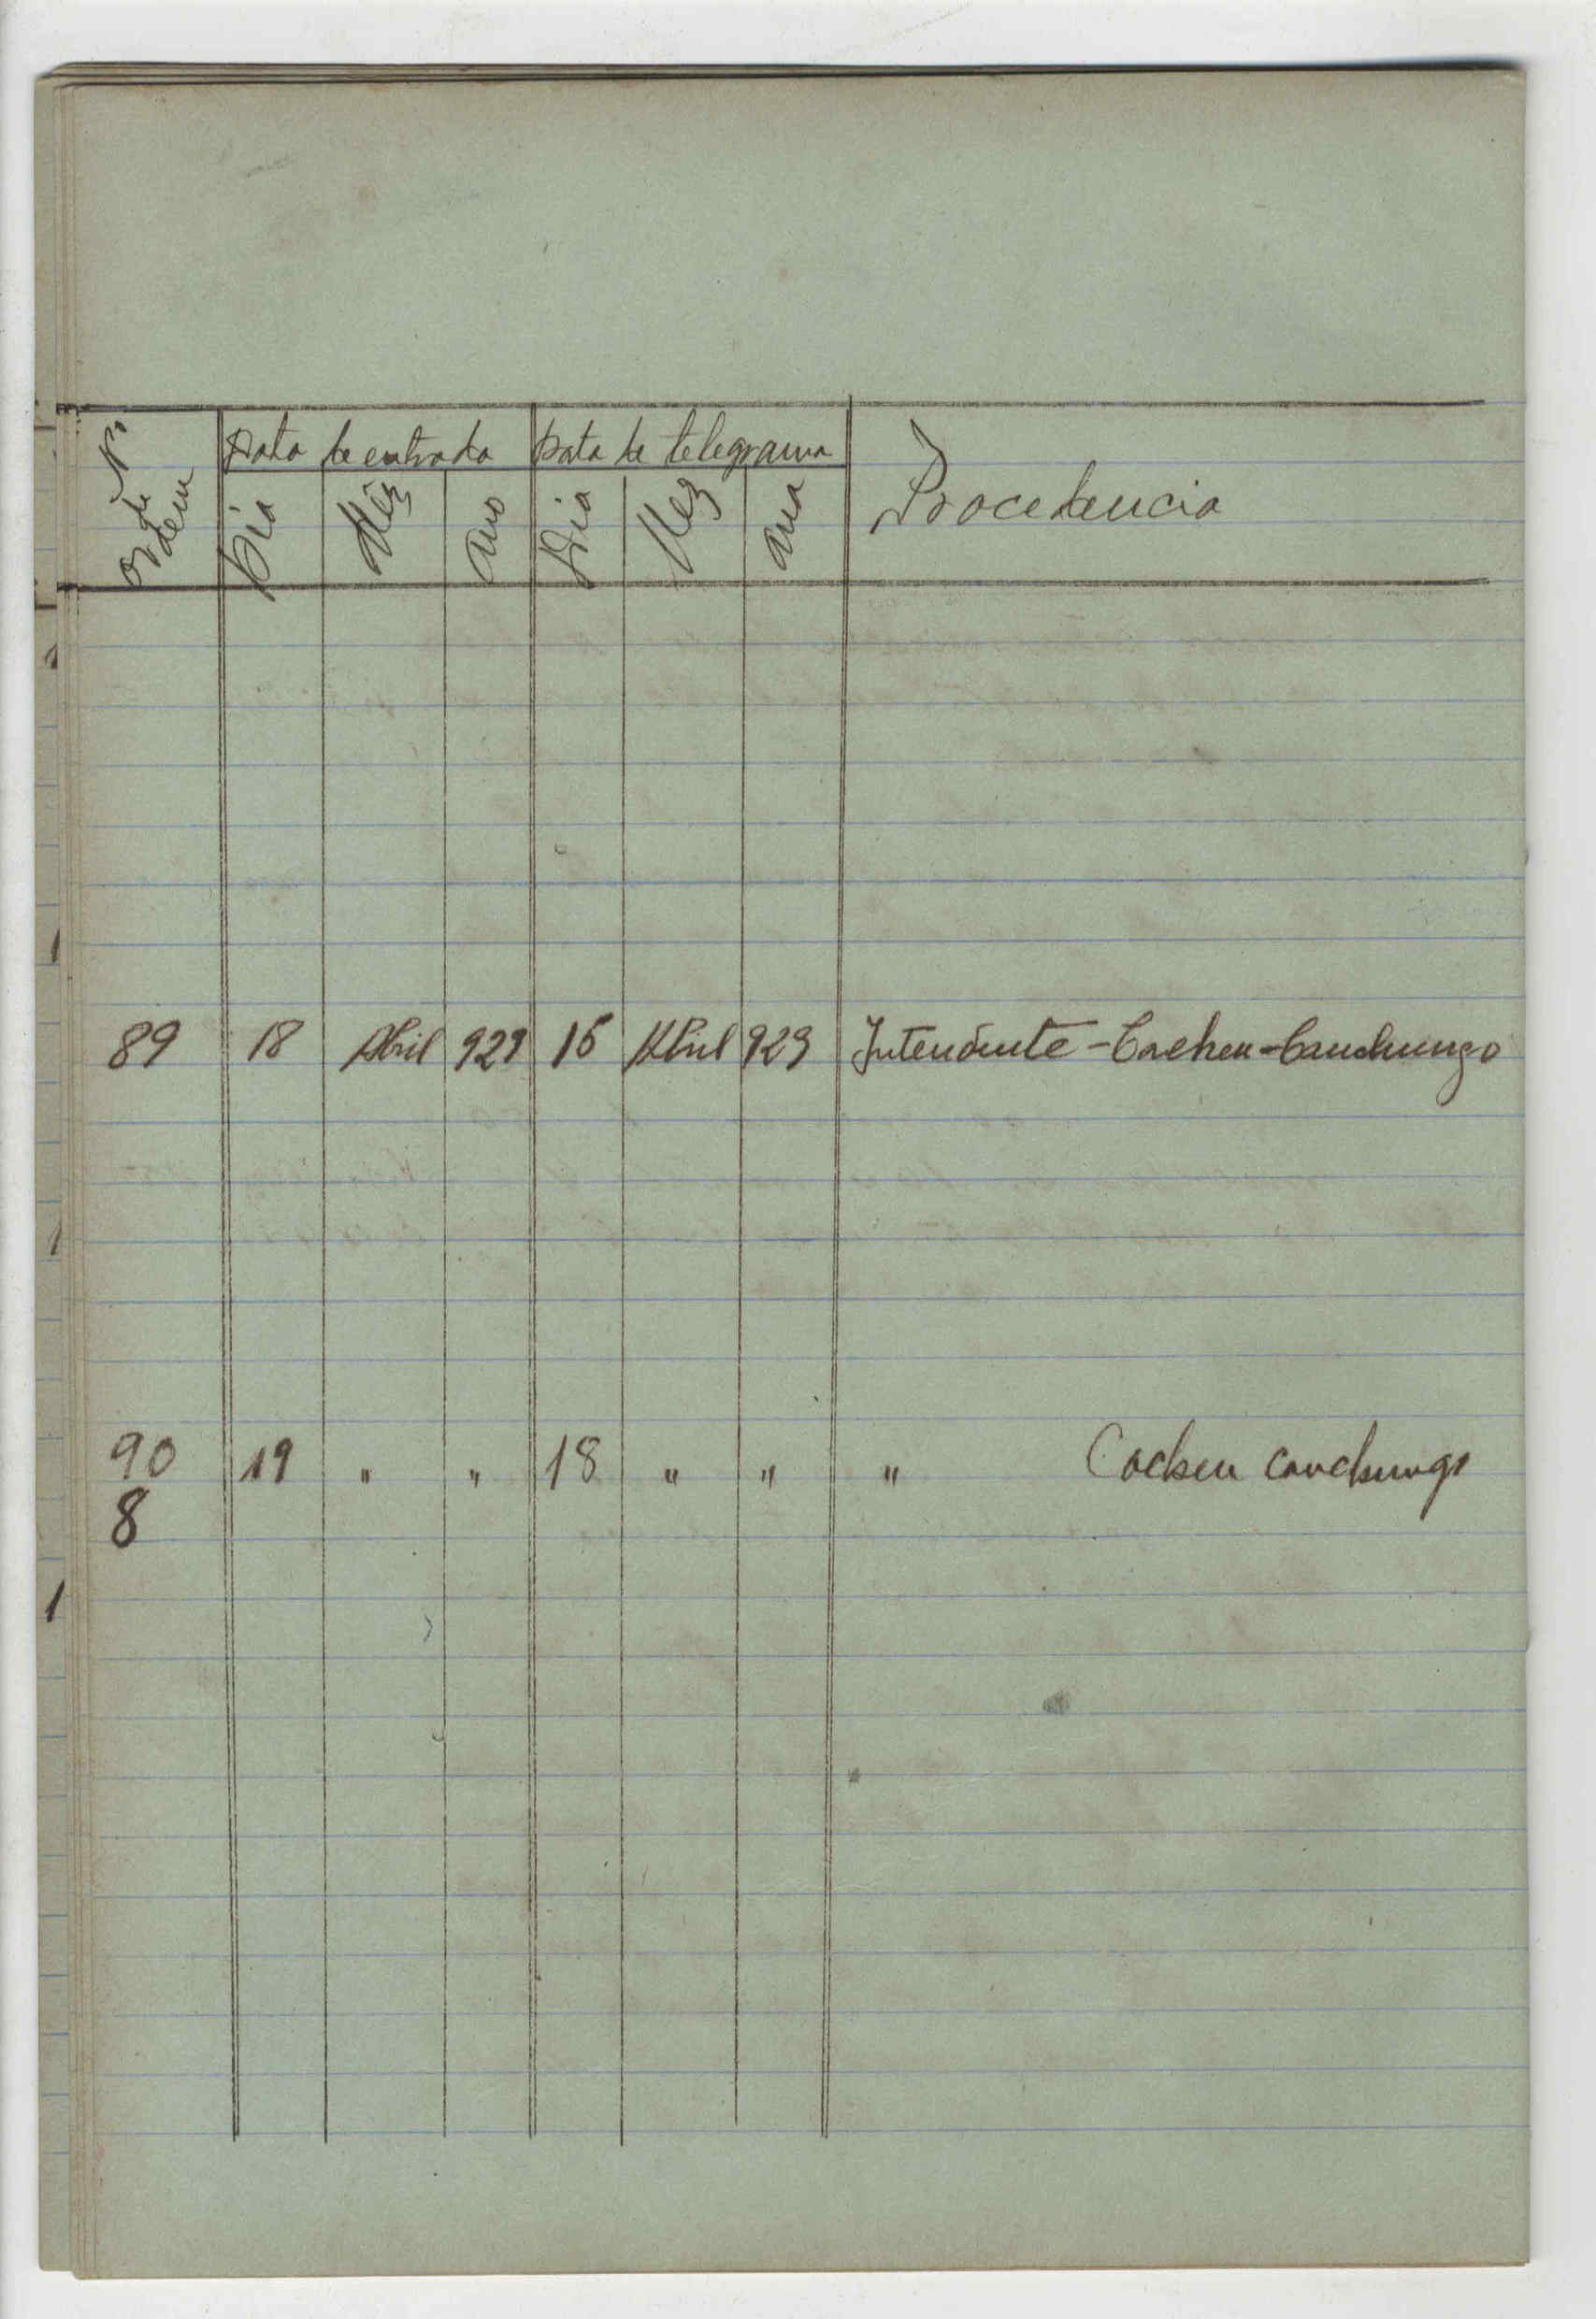 Nº de ordem Data de entrada Data de telegrama Procedencia
Dia Mês Ano Dia Mez Ano
89 18 Abril 929 16 Abril 929 Intendente - Cacheu - Canchungo
90 19 " " 18 " " " Cacheu Canchungo
8